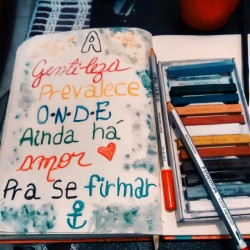 A
Gentileza
Prevalece
O•N•D•E
Ainda há
amor
Pra se firmar